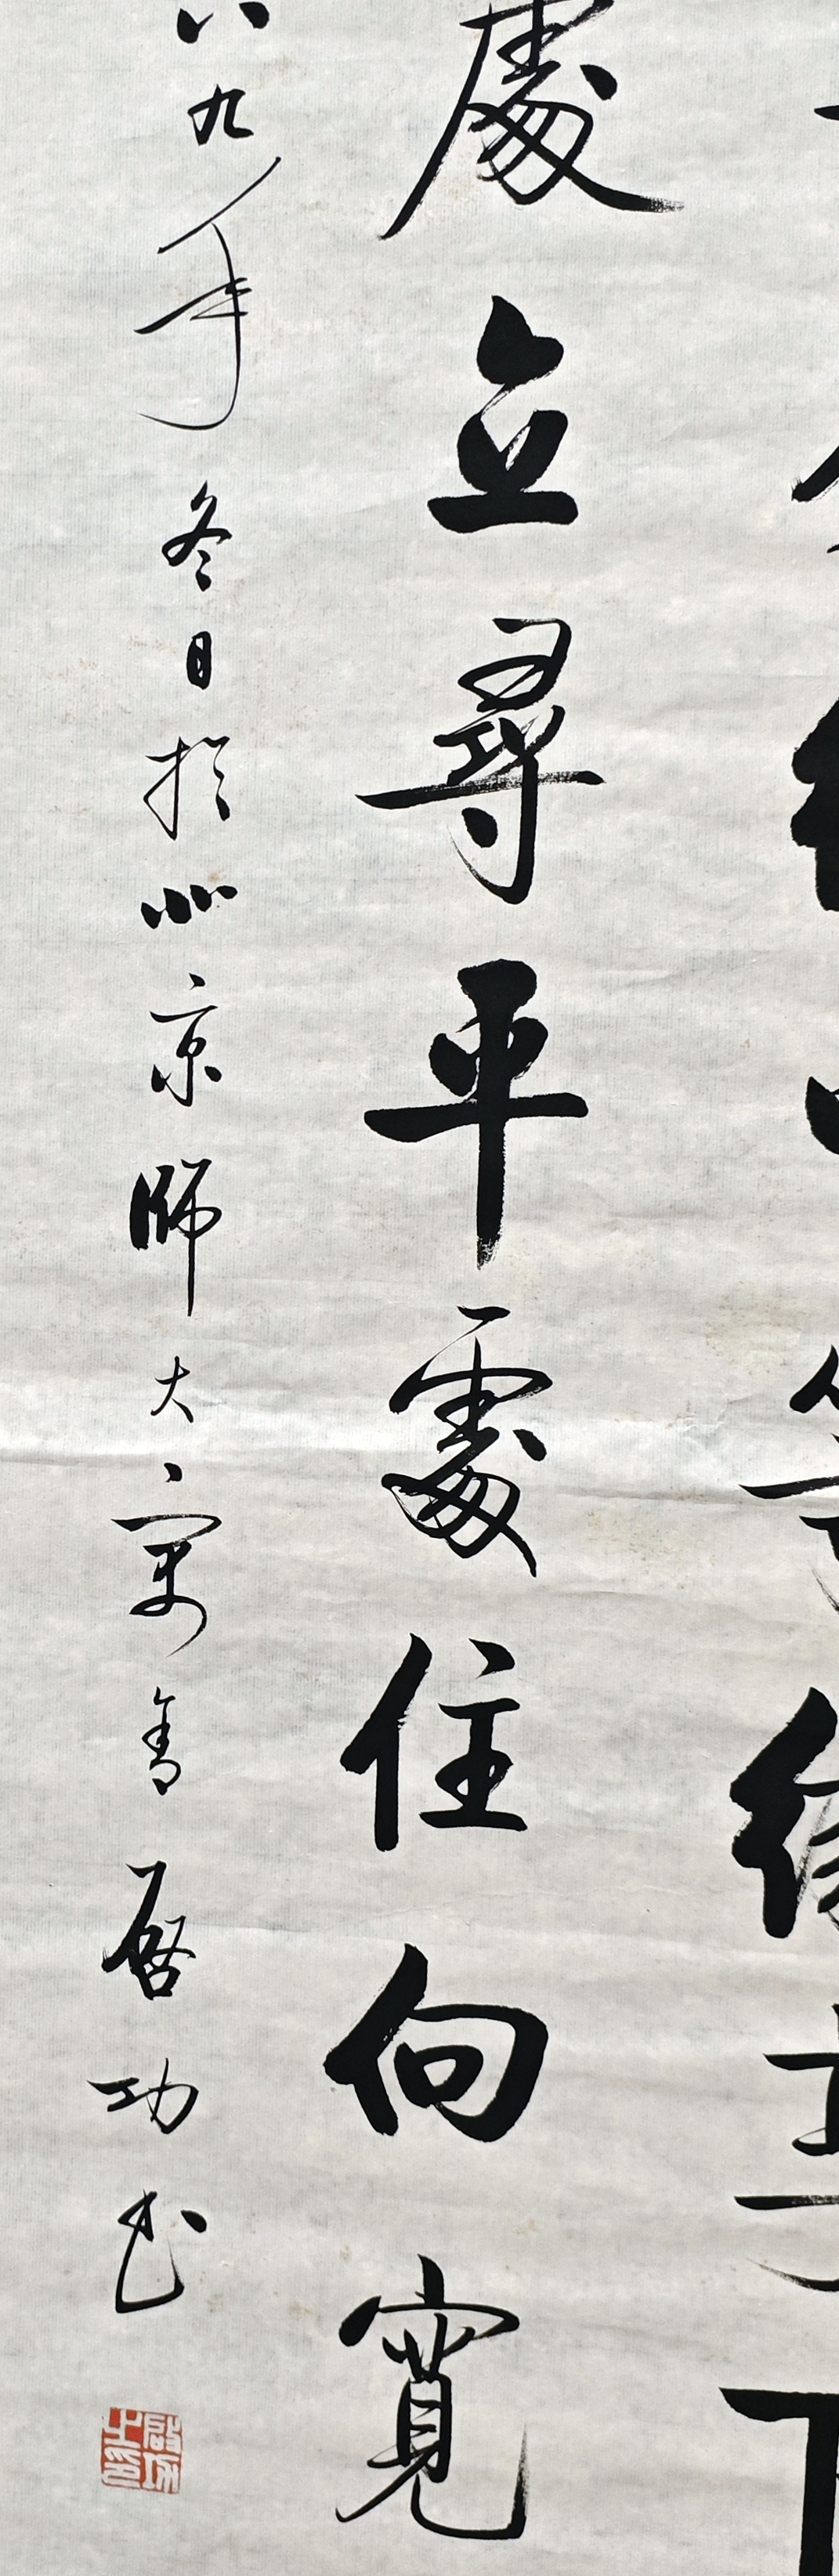 處立尋平處住向寬
八九年冬日於北京師大寓舍啟功书
啟功之印